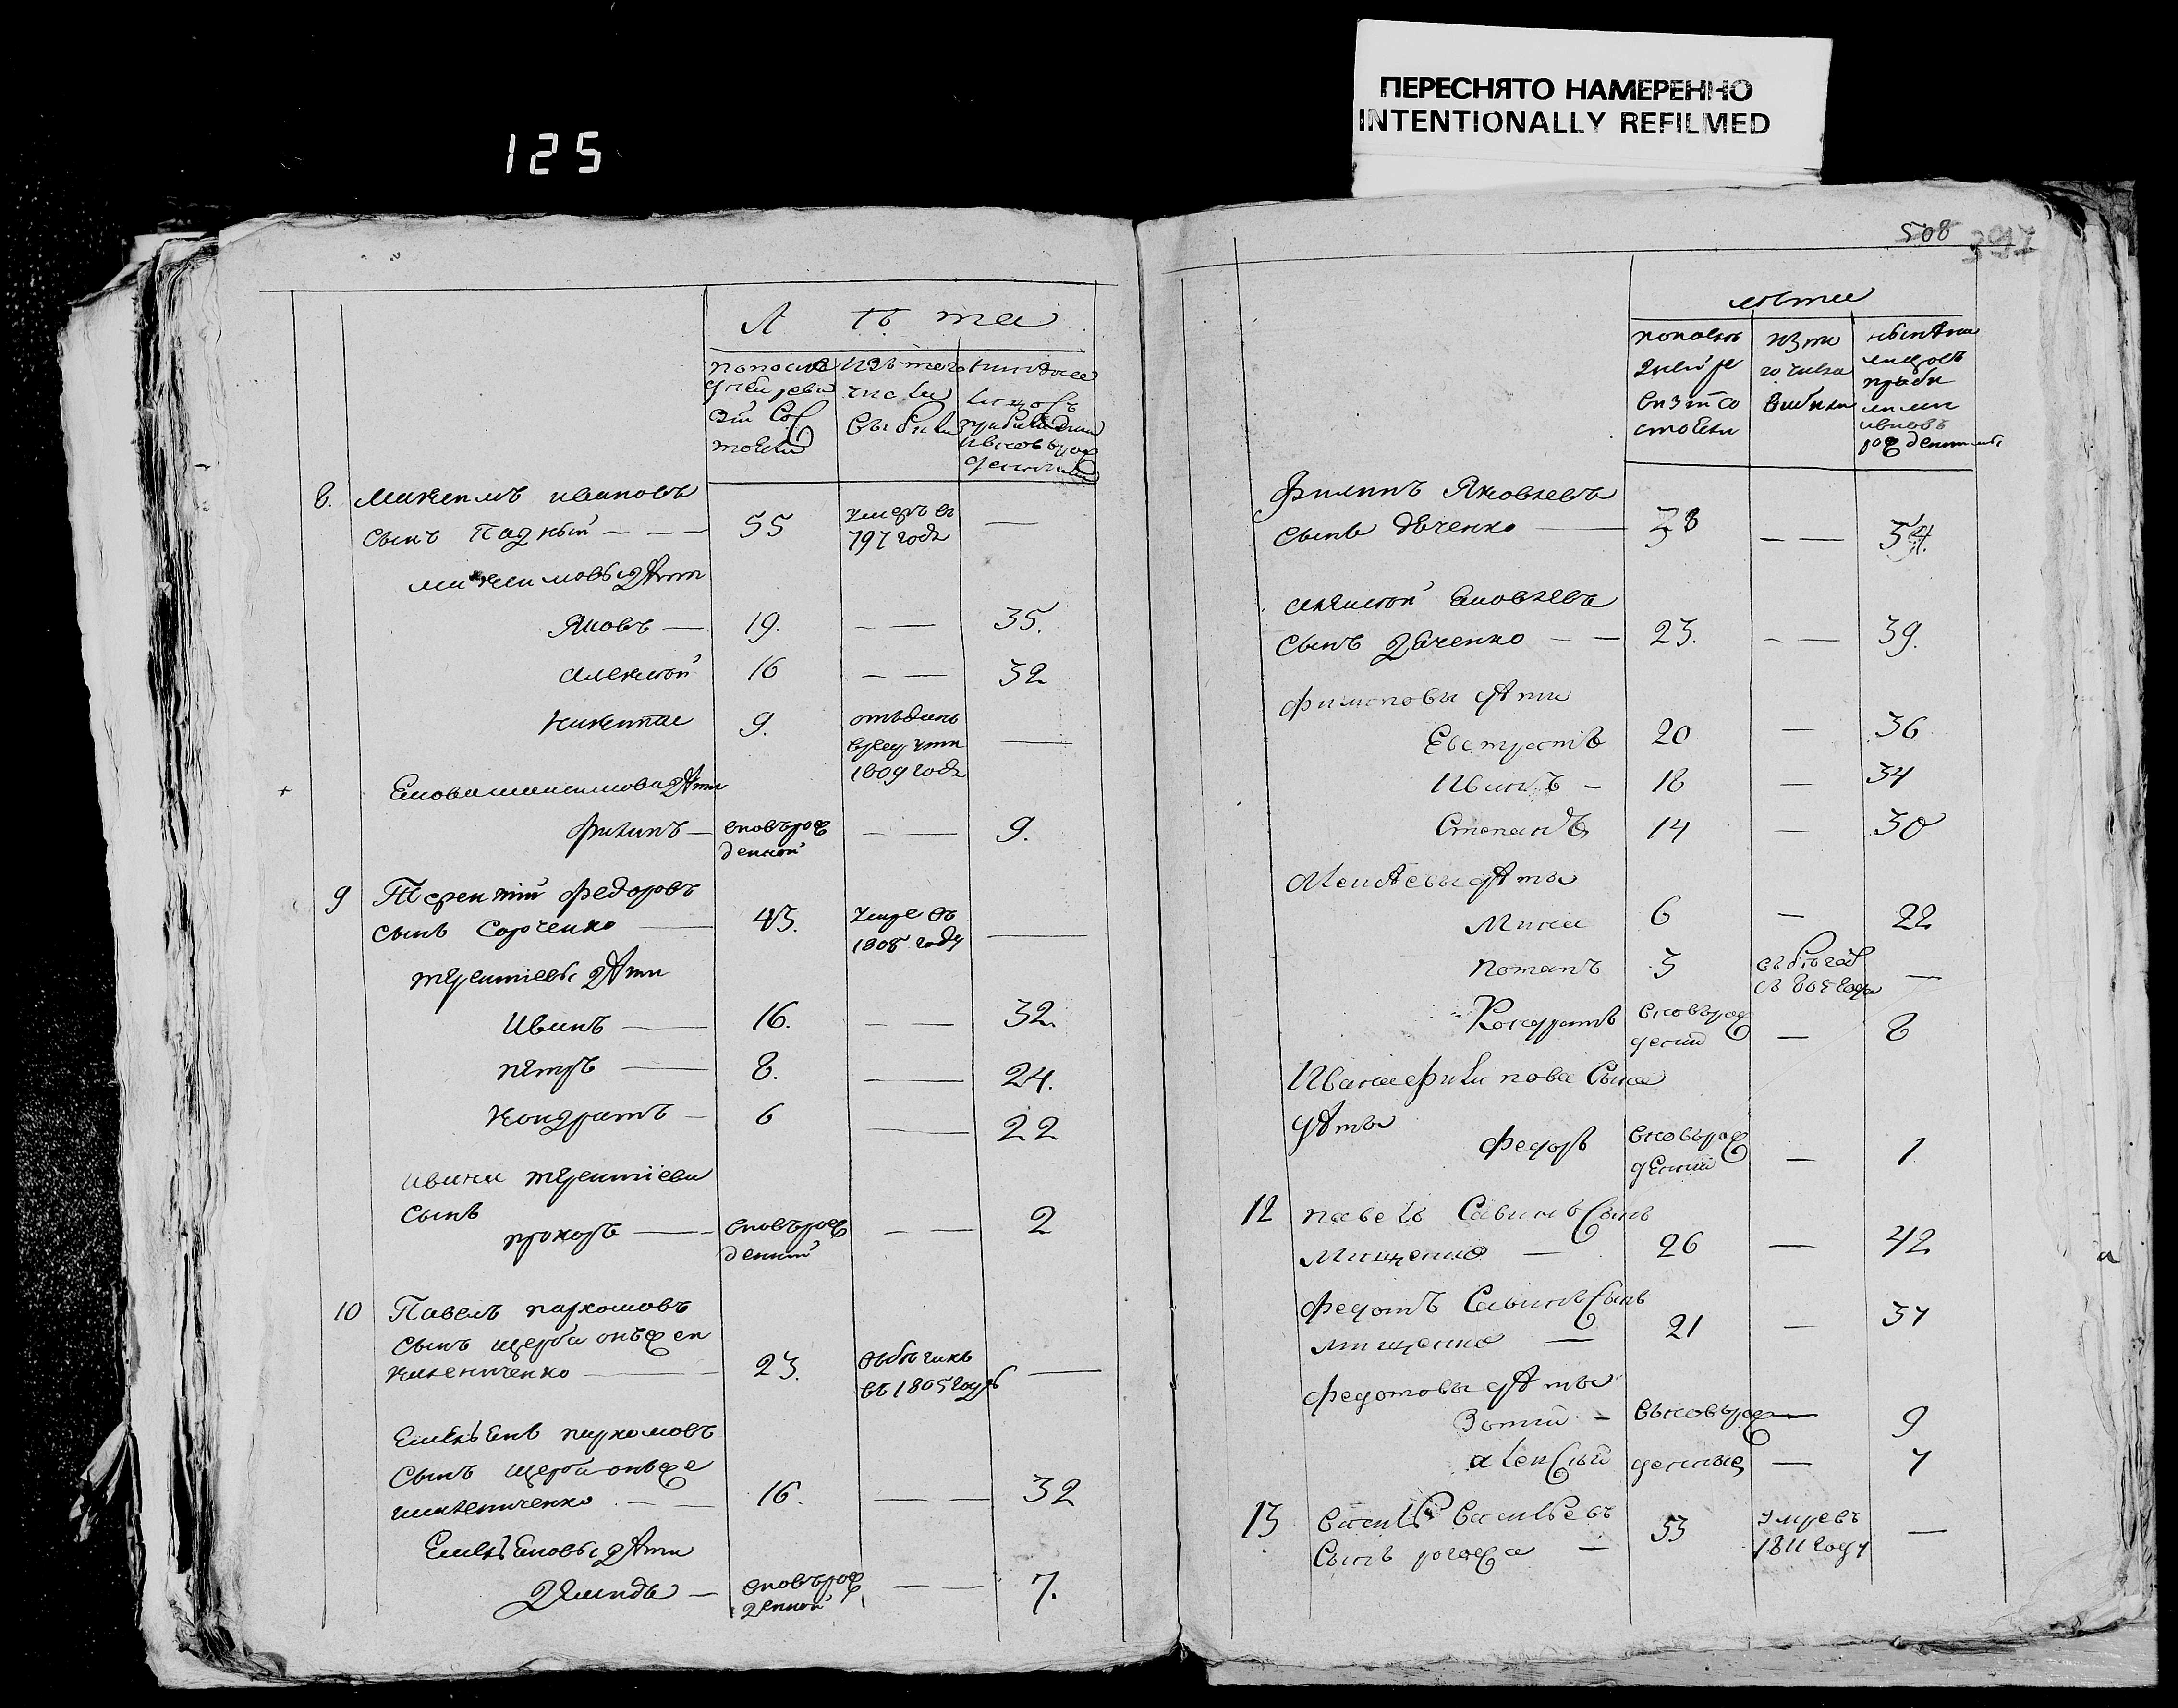 ПЕРЕСНЯТО НАМЕРЕННО
INTENTIONALLY REFILMED
125
Лѣта
по последней ревизии состояло
изъ того числа выбыло
8. Максимъ ивановъ
сынъ — — — 55 умеръ въ 797 годѣ —
максимовы дѣти
Яковъ — 19. — — 35.
алексѣй 16 — — 32
никита 9. отъданъ в рекруты 1809 годѣ —
Якова максимова дѣти
филипъ — вновърожденной — — 9.
9 Терентий федоровъ
сынъ Сорченко — 43. умре въ 1808 году —
терентиевы дѣти
Иванъ — 16. — — 32.
пётръ — 8. — 24.
кондратъ — 6 — 22
ивана терентиева
сынъ
прохоръ — вновърожденный — — 2
10 Павелъ пархомовъ
сынъ щерба онъже
23. въ 1805 годѣ —
Емельянъ пархомовъ
сынъ щерба онъже
— — 16. — — 32
Емельяновы дѣти
Демидъ — вновърожденной — — 7.
508 397
лѣта
по последней ревизии состояло
из того числа выбыло
ныне на лицо съ прибылыми и вновь рожденными
филипъ Яковлевъ
сынъ дѣченко — 38 — — 54.
алексѣй Яковлевъ
сынъ дѣченко — — 23. — — 39.
филиповы дѣти
Евстратъ 20 — 36
Иванъ — 18 — 34
Степанъ 14 — 30
Алексѣевы дѣти
Мина 6 — 22
потапъ 3 —
Кондратъ вновьрожденный — 8
Ивана филипова сына
дѣти
федоръ вновьрожденный — 1
12 павелъ Савинъ сынъ
Мищенко — 26 — 42
федотъ Савинъ сынъ
мищенко — 21 — 37
федотовы дѣти
Зотий — вновьрожденные — 9
алексѣй — 7
13 василей васильевъ
сынъ рогожа — 53 умре въ 1811 году —